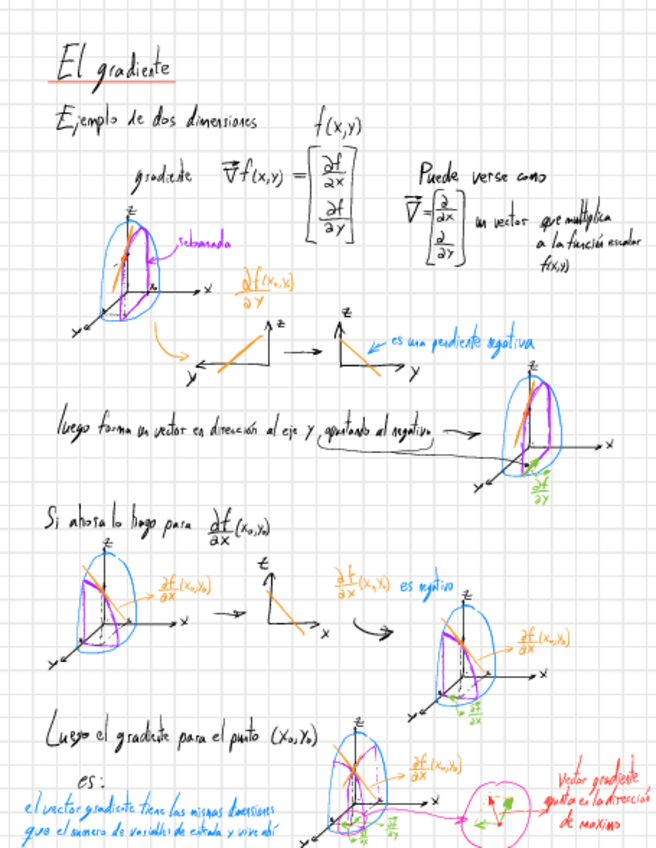 El gradiente
Ejemplo de dos dimensiones
f(x,y)
gradiente ∇f(x,y) = [∂f/∂x ∂f/∂y]
Puede verse como
∇ = [∂/∂x ∂/∂y] un vector que multiplica
a la función escalar
f(x,y)
z
rebanada
x
y
∂f(x₀,y₀)/∂y
z
y
z
y
es una pendiente negativa
luego forma un vector en dirección al eje y apuntando al negativo
z
x
y
∂f/∂y
Si ahora lo hago para ∂f/∂x (x₀,y₀)
z
∂f/∂x (x₀,y₀)
x
y
z
x
∂f/∂x (x₀,y₀) es negativo
z
∂f/∂x (x₀,y₀)
x
y
∂f/∂x
Luego el gradiente para el punto (x₀,y₀)
es:
el vector gradiente tiene las mismas dimensiones
que el numero de variables de entrada y vive ahí
z
∂f/∂x (x₀,y₀)
x
y
∂f/∂y
Vector gradiente
apunta en la dirección
de maximo